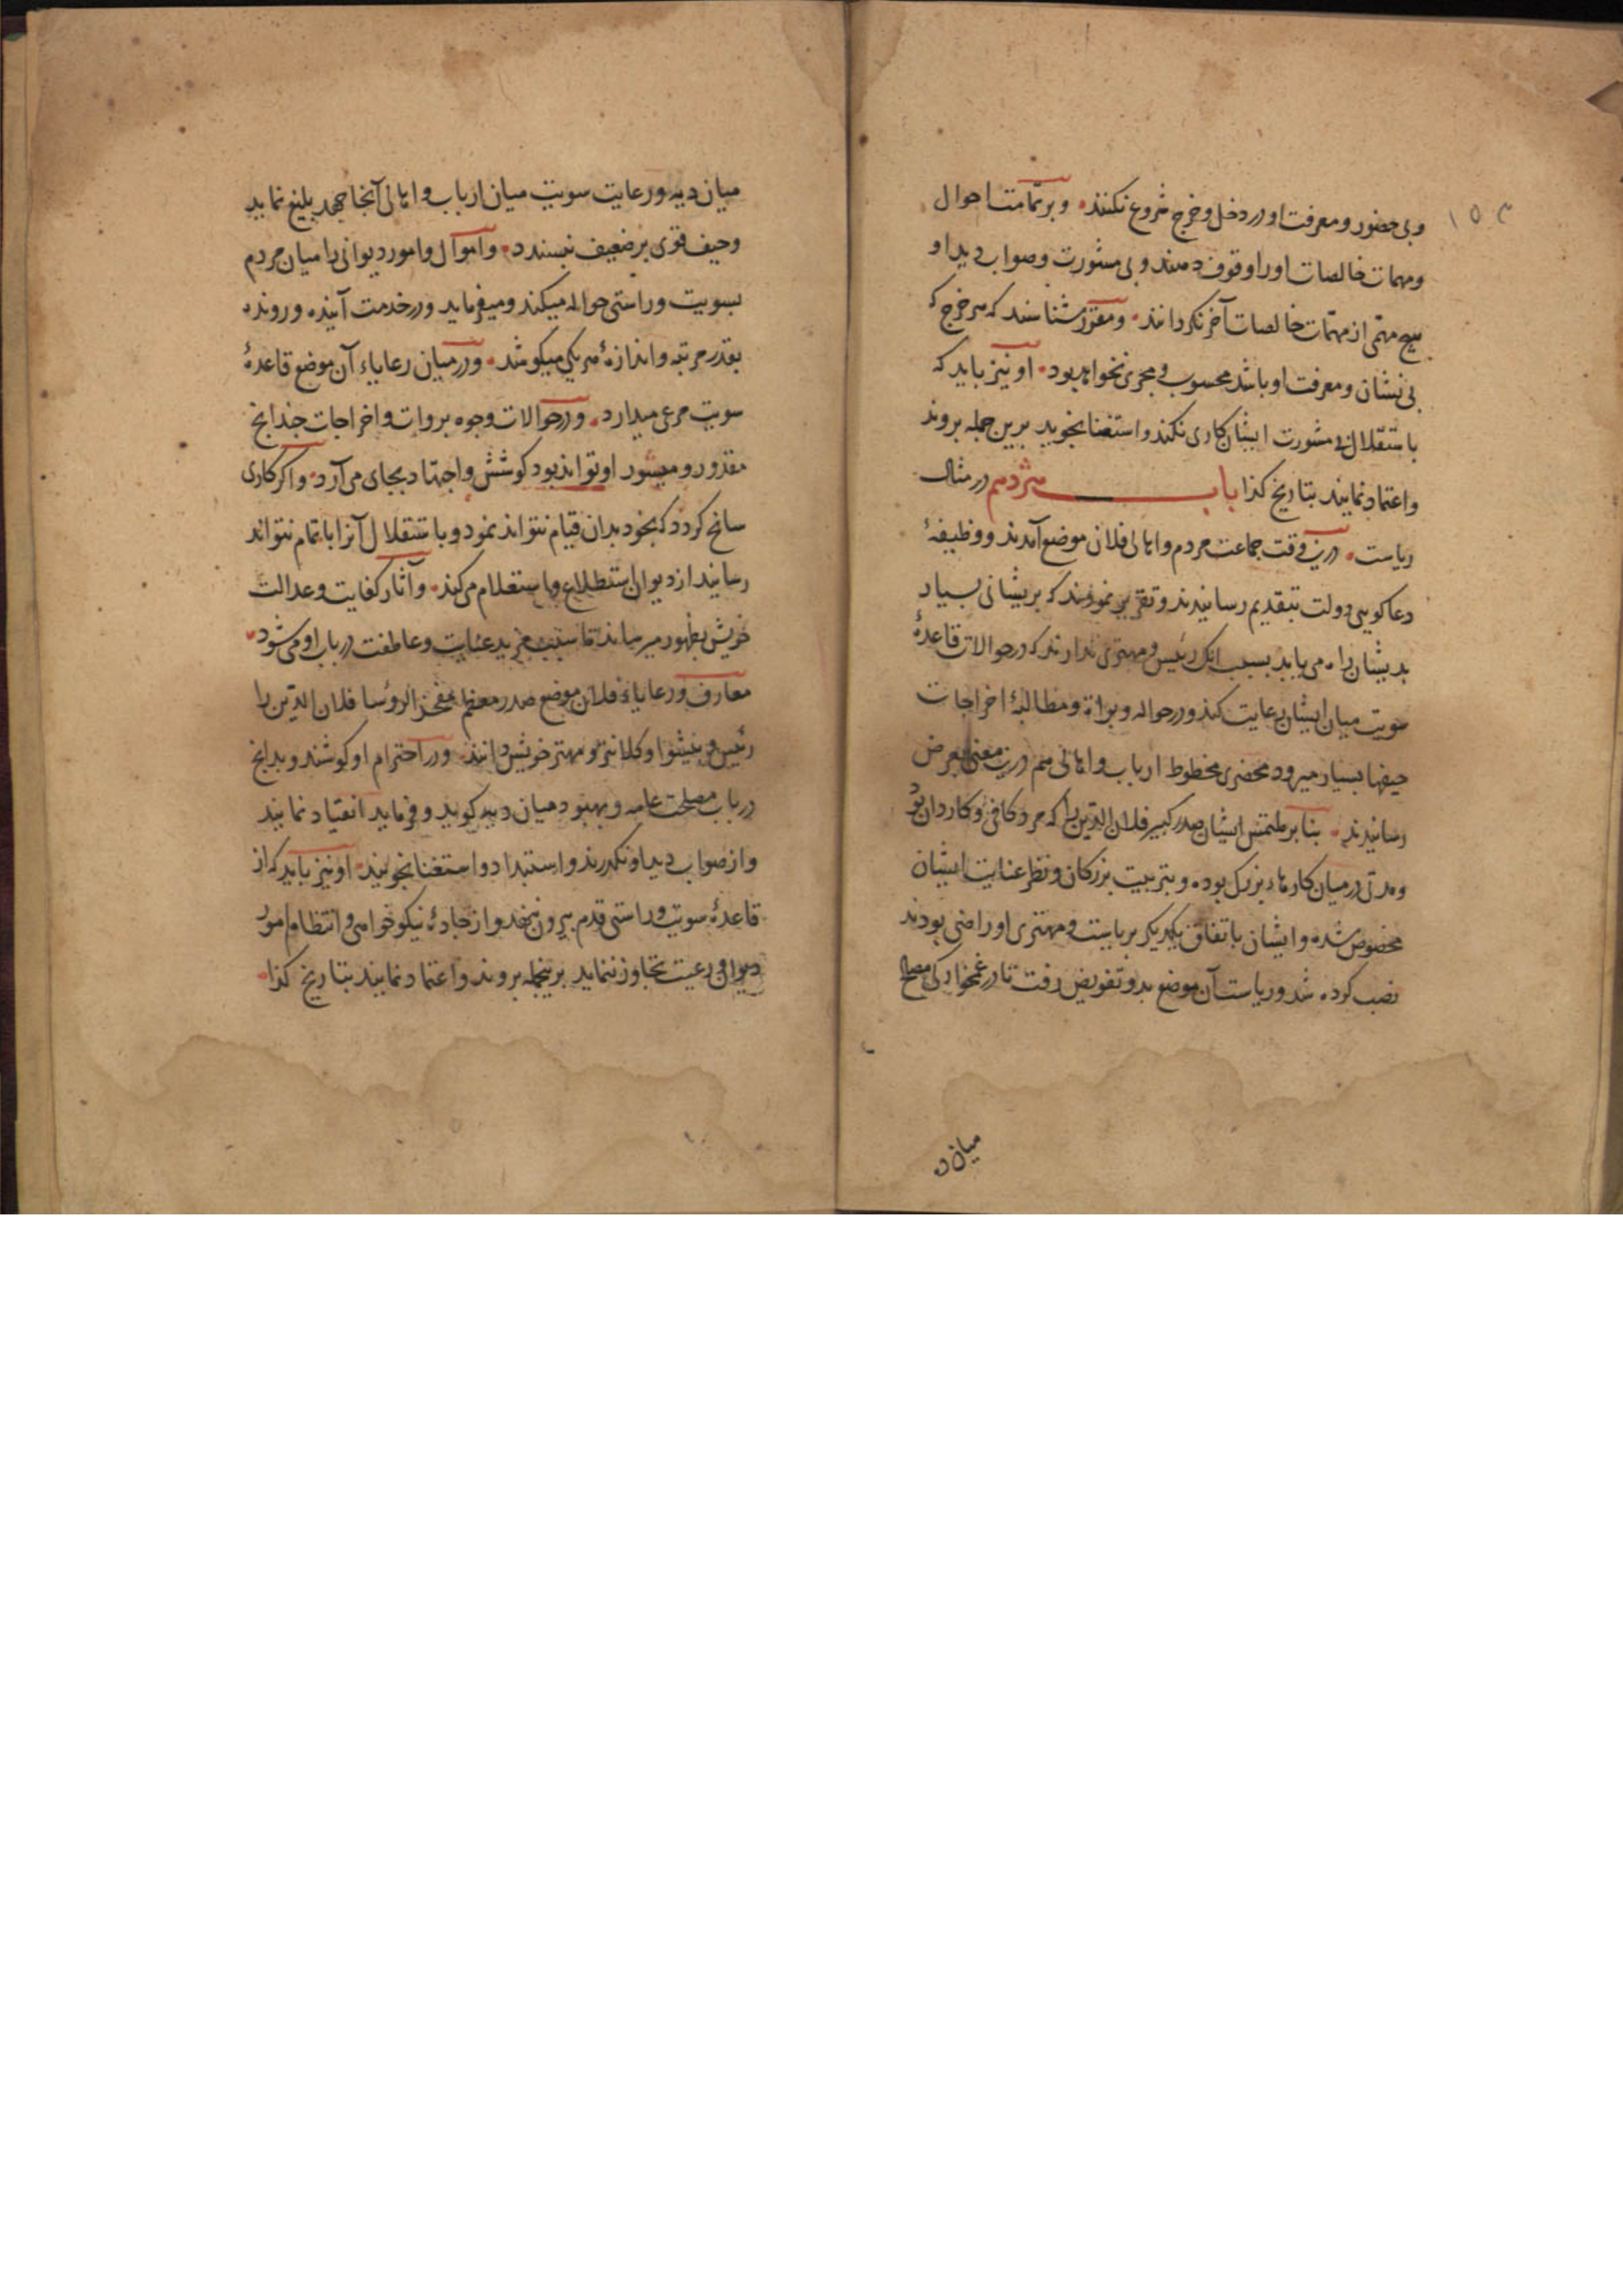 ۱۵۳
وبی حضور و معرفت او در دخل و خرج شروع نکنند و بر تمامت احوال
و مهمات خالصات او را وقوف دهند و بی مشورت و صواب دید او
هیچ مهمّی از مهمّات خالصات آخر نکردانند و مقرّر شناسند که هر خرج که
بی نشان و معرفت او باشد محسوب و مجری نخواهد بود او نیز باید که
باستقلال بی مشورت ایشان کاری نکند و استغنا نجوید برین جمله بروند
و اعتماد نمایند بتاریخ کذا باب هژدهم در مثال
ریاست درین وقت جماعت مردم و اهالی فلان موضع آمدند و وظیفهٔ
دعا کویی دولت بتقدیم رسانیدند و تقریر نمودند که پریشانی بسیار
بدیشان راه می یابد بسبب انک رئیس و مهتری ندارند که در حوالات قاعدهٔ
سویت میان ایشان رعایت کند و در حواله و براة و مطالبهٔ اخراجات
حیفها بسیار میرود محضری بخطوط ارباب و اهالی هم درین معنی بعرض
رسانیدند بنا بر ملتمس ایشان صدر کبیر فلان الدین را که مرد کافی و کاردان بود
و مدتی در میان کارهاء بزرک بوده و بتربیت بزرکان و نظر عنایت ایشان
مخصوص شده و ایشان باتفاق یکدیکر بریاست و مهتری او راضی بودند
نصب کرده شد و ریاست آن موضع بدو تفویض رفت تا در غمخوارکی مصالح
میان ده
میان دیه و رعایت سویت میان ارباب و اهالی آنجا جهد بلیغ نماید
و حیف قوی بر ضعیف نپسندد و اموال و امور دیوانی را میان مردم
بسویت و راستی حواله میکند و میفرماید و در خدمت آینده و رونده
بقدر مرتبه و اندازهٔ هر یکی میکوشد و در میان رعایاء آن موضع قاعدهٔ
سویت مرعی میدارد و در حوالات وجوه بروات و اخراجات جندانج
مقدور و میسور او تواند بود کوشش و اجتهاد بجای می آرد و اکر کاری
سانح کردد که بخود بدان قیام نتواند نمود و باستقلال آنرا باتمام نتواند
رسانید از دیوان استطلاع و استعلام می کند و آثار کفایت و عدالت
خویش بظهور میرساند تا سبب مزید عنایت و عاطفت در باب او می شود
معارف و رعایاء فلان موضع صدر معظم مفخر الرؤسا فلان الدین را
رئیس و پیشوا و کلانتر و مهتر خویش دانند و در احترام او کوشند و بدانج
در باب مصلحت عامه و بهبود میان دیه کوید و فرماید انقیاد نمایند
و از صواب دید او نکذرند و استبداد و استغنا نجویند او نیز باید که از
قاعدهٔ سویت و راستی قدم بیرون ننهد و از جادهٔ نیکو خواهی و انتظام امور
دیوان و رعیت تجاوز ننماید برینجمله بروند و اعتماد نمایند بتاریخ کذا